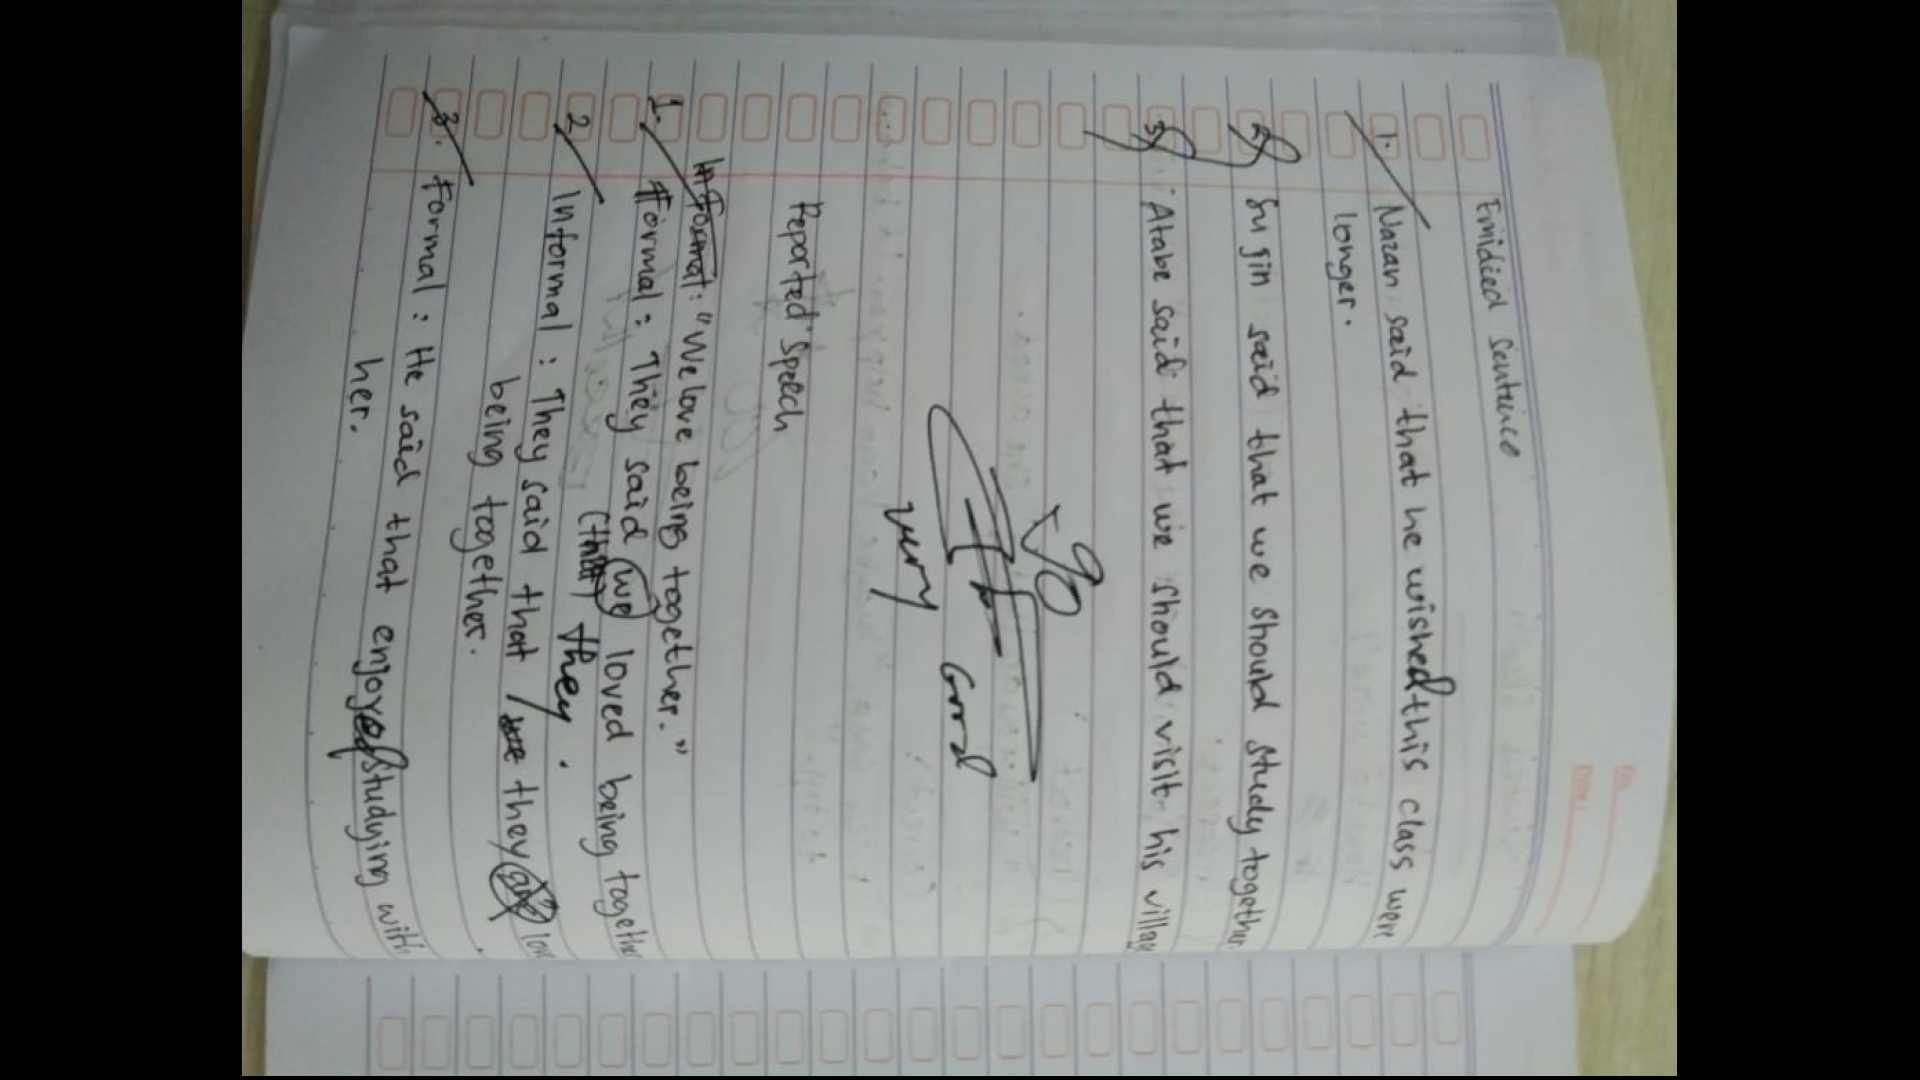 Emidied Sentence
1. Nazan said that he wished this class were
longer.
2) Su jin said that we should study together.
3) Atabe said that we should visit his village
90
Very Good
Reported Speech
Informat: "We love being together."
1. Formal: They said we loved being together
(that) they.
2 Informal: They said that / we they are love
being together.
3. Formal: He said that enjoyed studying with
her.
NO.
DATE